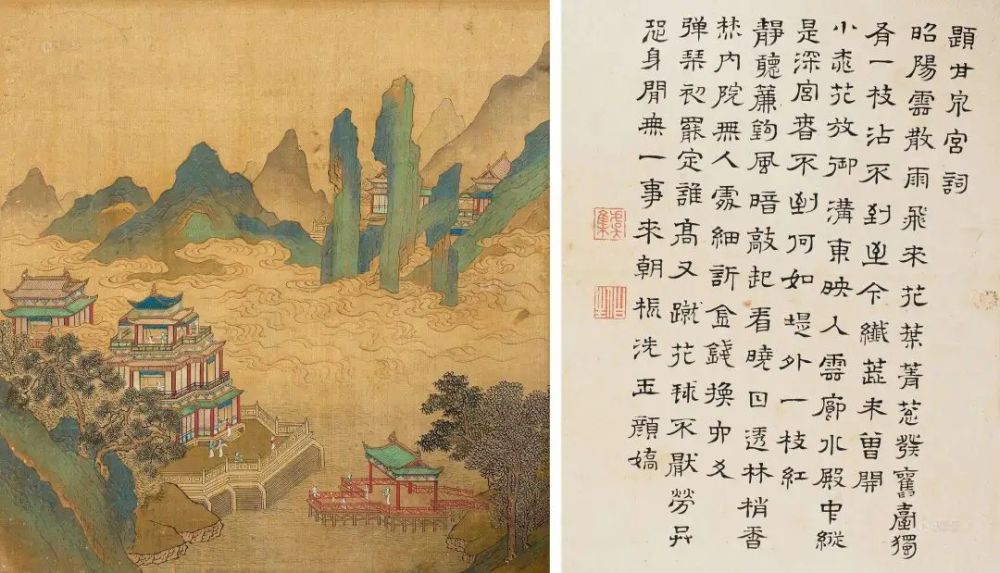 題甘泉宮詞
昭陽雲散雨飛來花葉菁葱發舊臺獨
有一枝沾不到至今纖蕋未曾開
小桃花放御溝東映人雲廊水殿中縱
是深宮春不到何如堤外一枝紅
靜聽簾鉤風暗敲起看曉日透林梢香
焚內院無人處細訴金錢換卯爻
彈琴初罷定誰高又蹴花球不厭勞
恐身閒無一事來朝梳洗玉顏嬌
虞集